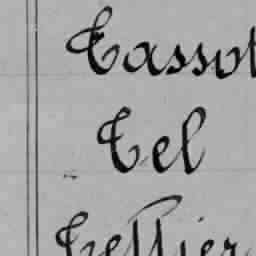 Tassot
Tel
Tellier